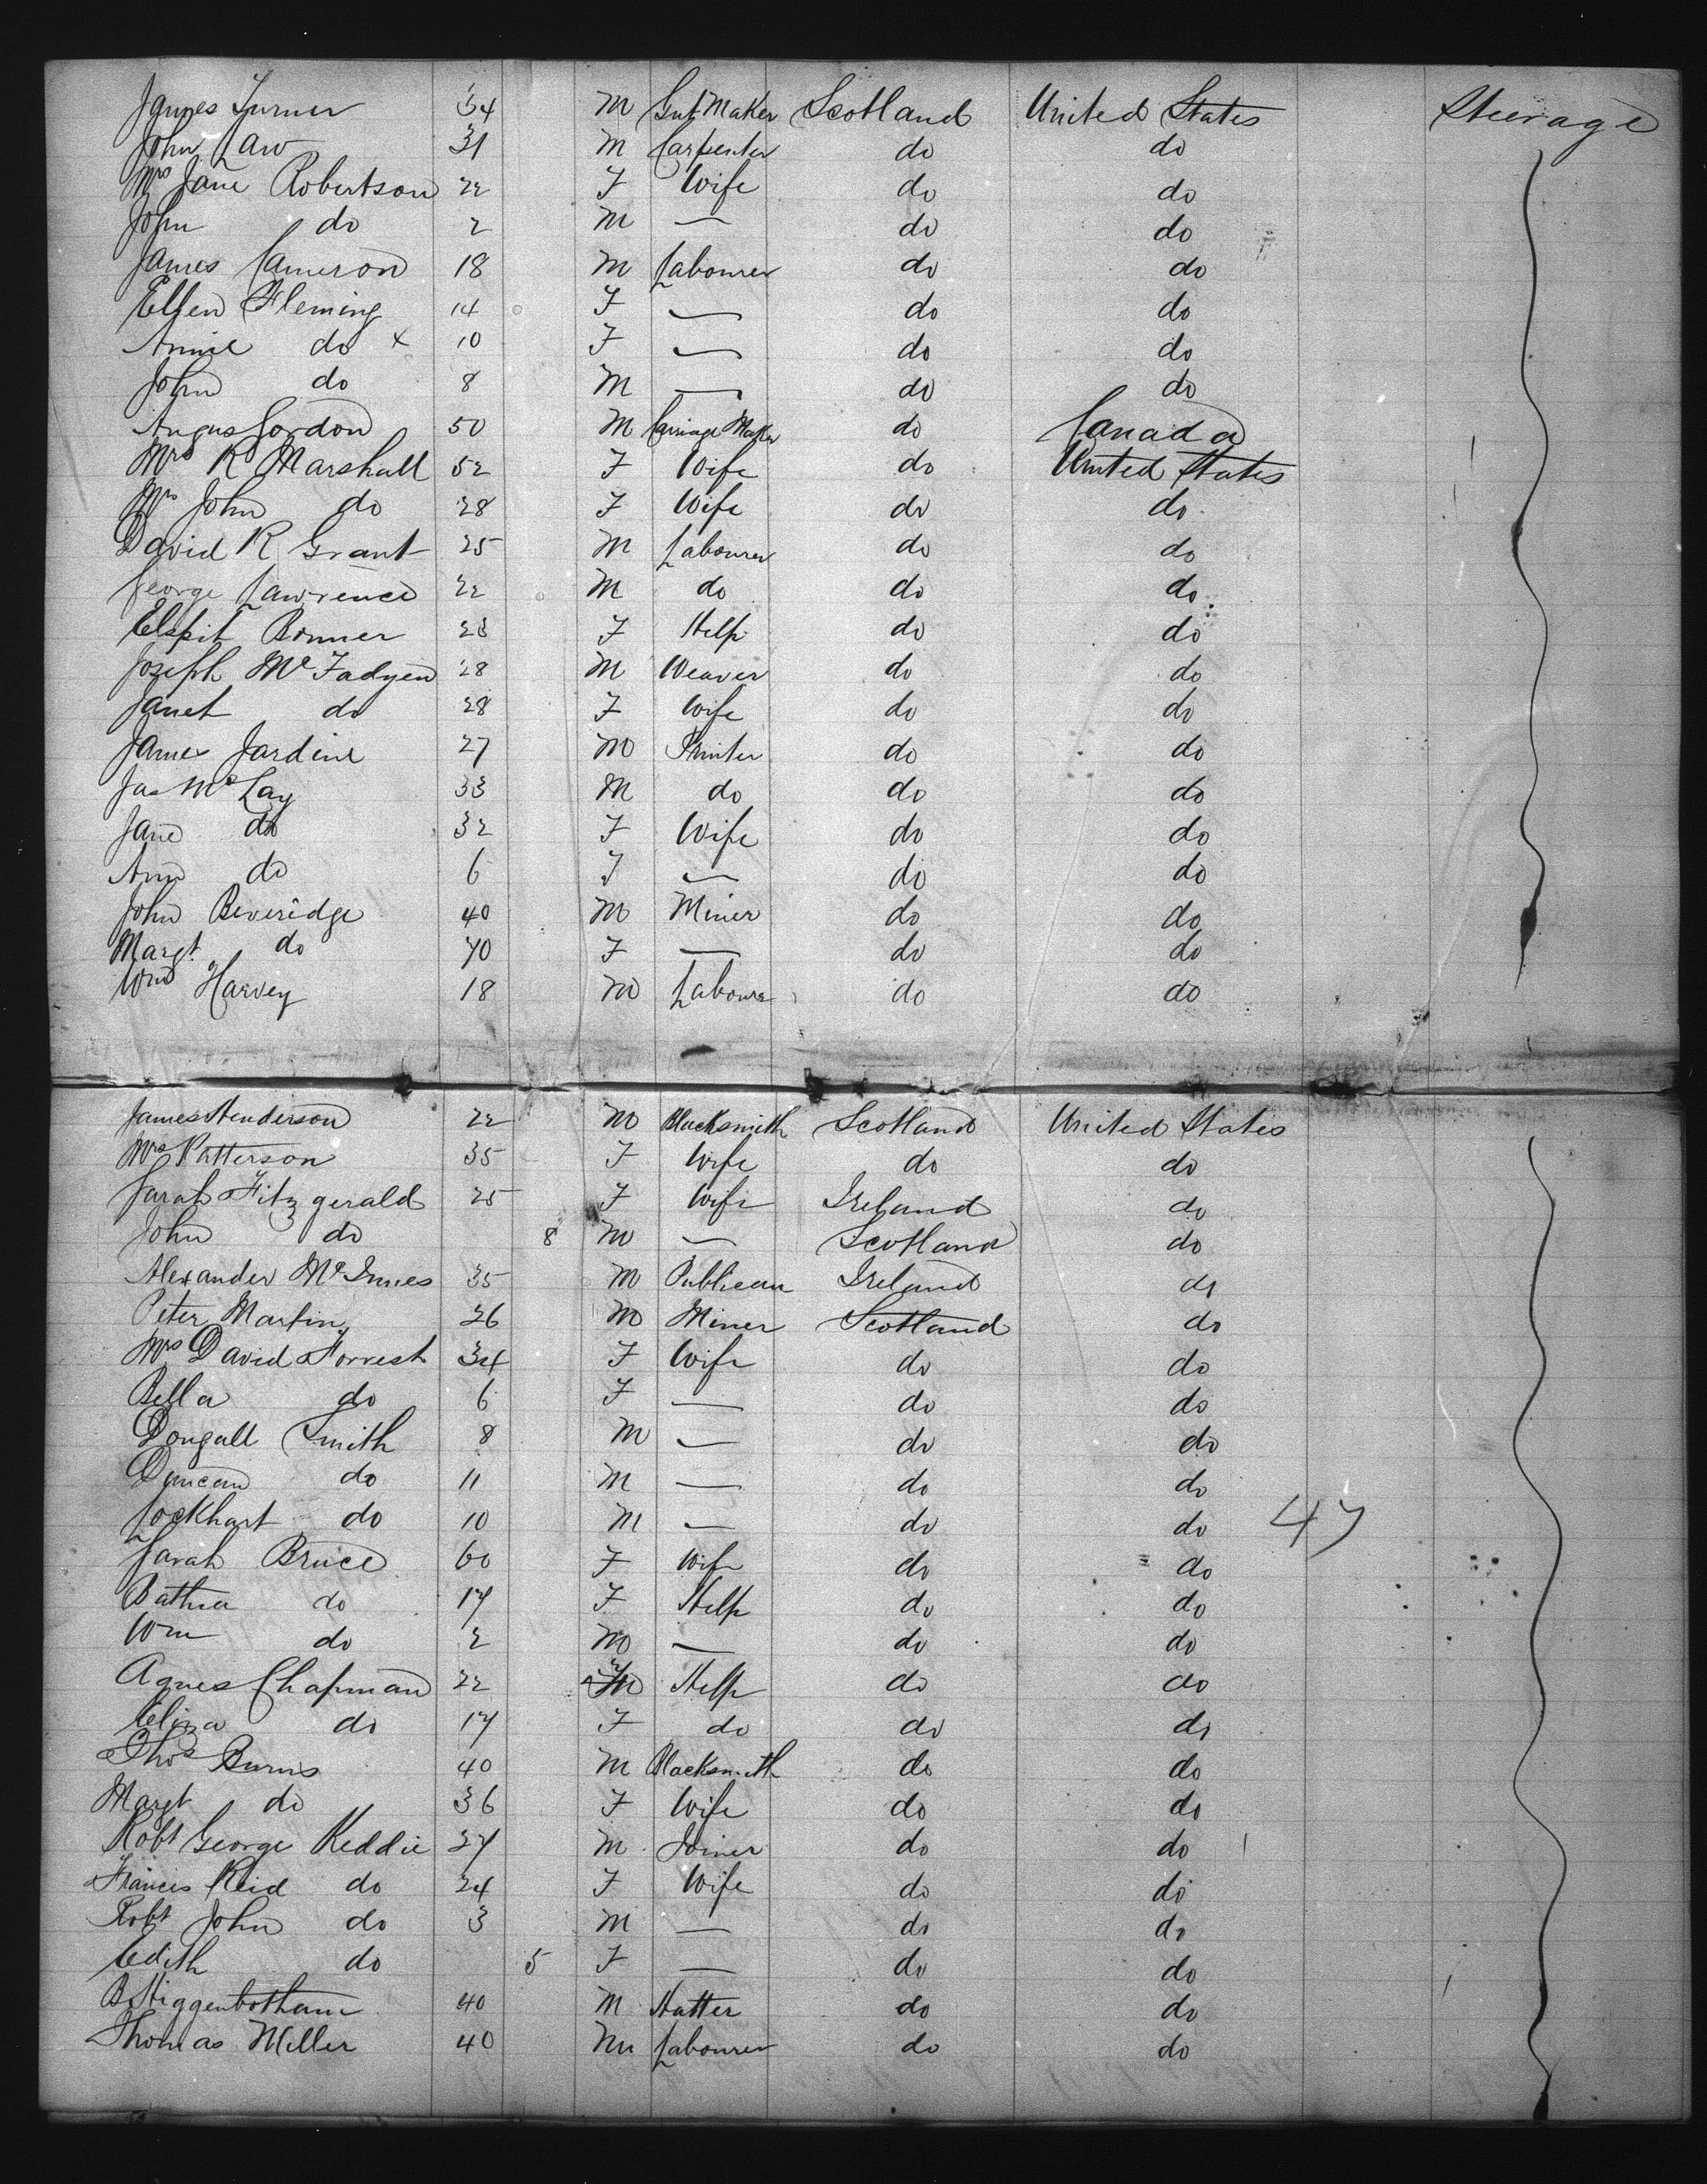 James Turner 34 M Gut Maker Scotland United States Steerage
John Law 31 M Carpenter do do
Mrs Jane Robertson 22 F Wife do do
John do 2 M — do do
James Cameron 18 M Labourer do do
Ellen Fleming 14 F — do do
Annie do x 10 F — do do
John do 8 M — do do
Angus Gordon 50 M Carriage Maker do Canada
Mrs R Marshall 52 F Wife do United States
Mrs John do 28 F Wife do do
David R Grant 25 M Labourer do do
George Lawrence 22 M do do do
Elspit Bonner 23 F Help do do
Joseph McFadyen 28 M Weaver do do
Janet do 28 F Wife do do
James Jardine 27 M Printer do do
Jas McLay 33 M do do do
Jane do 32 F Wife do do
Ann do 6 F — do do
John Beveridge 40 M Miner do do
Margt do 70 F — do do
Wm Harvey 18 M Laboure do do
James Henderson 22 M Blacksmith Scotland United States
Mrs Patterson 35 F Wife do do
Sarah Fitzgerald 25 F Wife Ireland do
John do 8 M — Scotland do
Alexander McInnes 35 M Publican Ireland do
Peter Martin 26 M Miner Scotland do
Mrs David Forrest 34 F Wife do do
Bella do 6 F — do do
Dougall Smith 8 M — do do
Duncan do 11 M — do do
Lockhart do 10 M — do do 47
Sarah Bruce 60 F Wife do do
Bathia do 17 F Help do do
Wm do 2 M — do do
Agnes Chapman 22 F Help do do
Eliza do 17 F do do do
Thos Burns 40 M Blacksmith do do
Margt do 36 F Wife do do
Robt George Keddie 27 M Joiner do do
Francis Reid do 24 F Wife do do
Robt John do 3 M — do do
Edith do 5 F — do do
B Higgenbotham 40 M Hatter do do
Thomas Miller 40 M Labourer do do